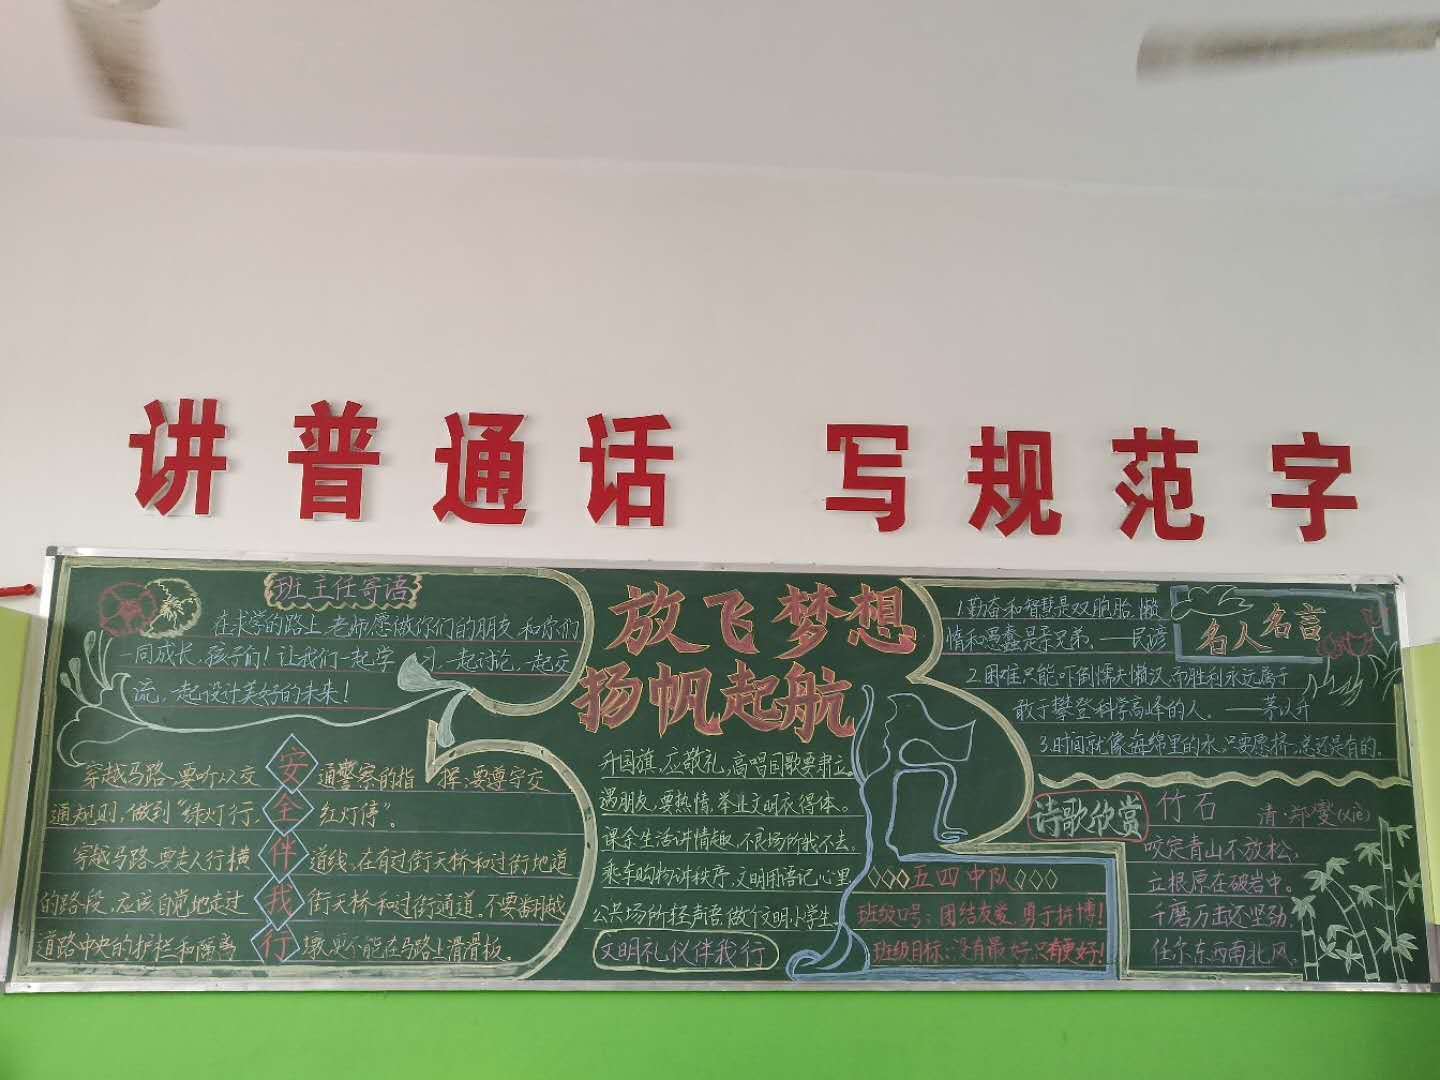 讲普通话 写规范字
班主任寄语
在求学的路上,老师愿做你们的朋友,和你们
一同成长,孩子们!让我们一起学习,一起讨论,一起交
流,一起设计美好的未来!
安全伴我行
穿越马路,要听从交通警察的指挥,要遵守交
通规则,做到“绿灯行,红灯停”。
穿越马路,要走人行横道线,在有过街天桥和过街地道
的路段,应该自觉地走过街天桥和过街通道。不要翻越
道路中央的护栏和隔离墩,更不能在马路上滑滑板。
放飞梦想
扬帆起航
升国旗,应敬礼,高唱国歌要肃立。
遇朋友,要热情,举止文明衣得体。
课余生活讲情趣,不良场所我不去。
乘车购物讲秩序,文明用语记心里
公共场所轻声语,做个文明小学生。
文明礼仪伴我行
五四中队
班级口号:团结友爱,勇于拼搏!
班级目标:没有最好,只有更好!
名人名言
1.勤奋和智慧是双胞胎,懒
惰和愚蠢是亲兄弟。——民谚
2.困难只能吓倒懦夫懒汉,而胜利永远属于
敢于攀登科学高峰的人。——茅以升
3.时间就像海绵里的水,只要愿挤,总还是有的。
诗歌欣赏
竹石
清·郑燮(xiè)
咬定青山不放松,
立根原在破岩中。
千磨万击还坚劲,
任尔东西南北风。